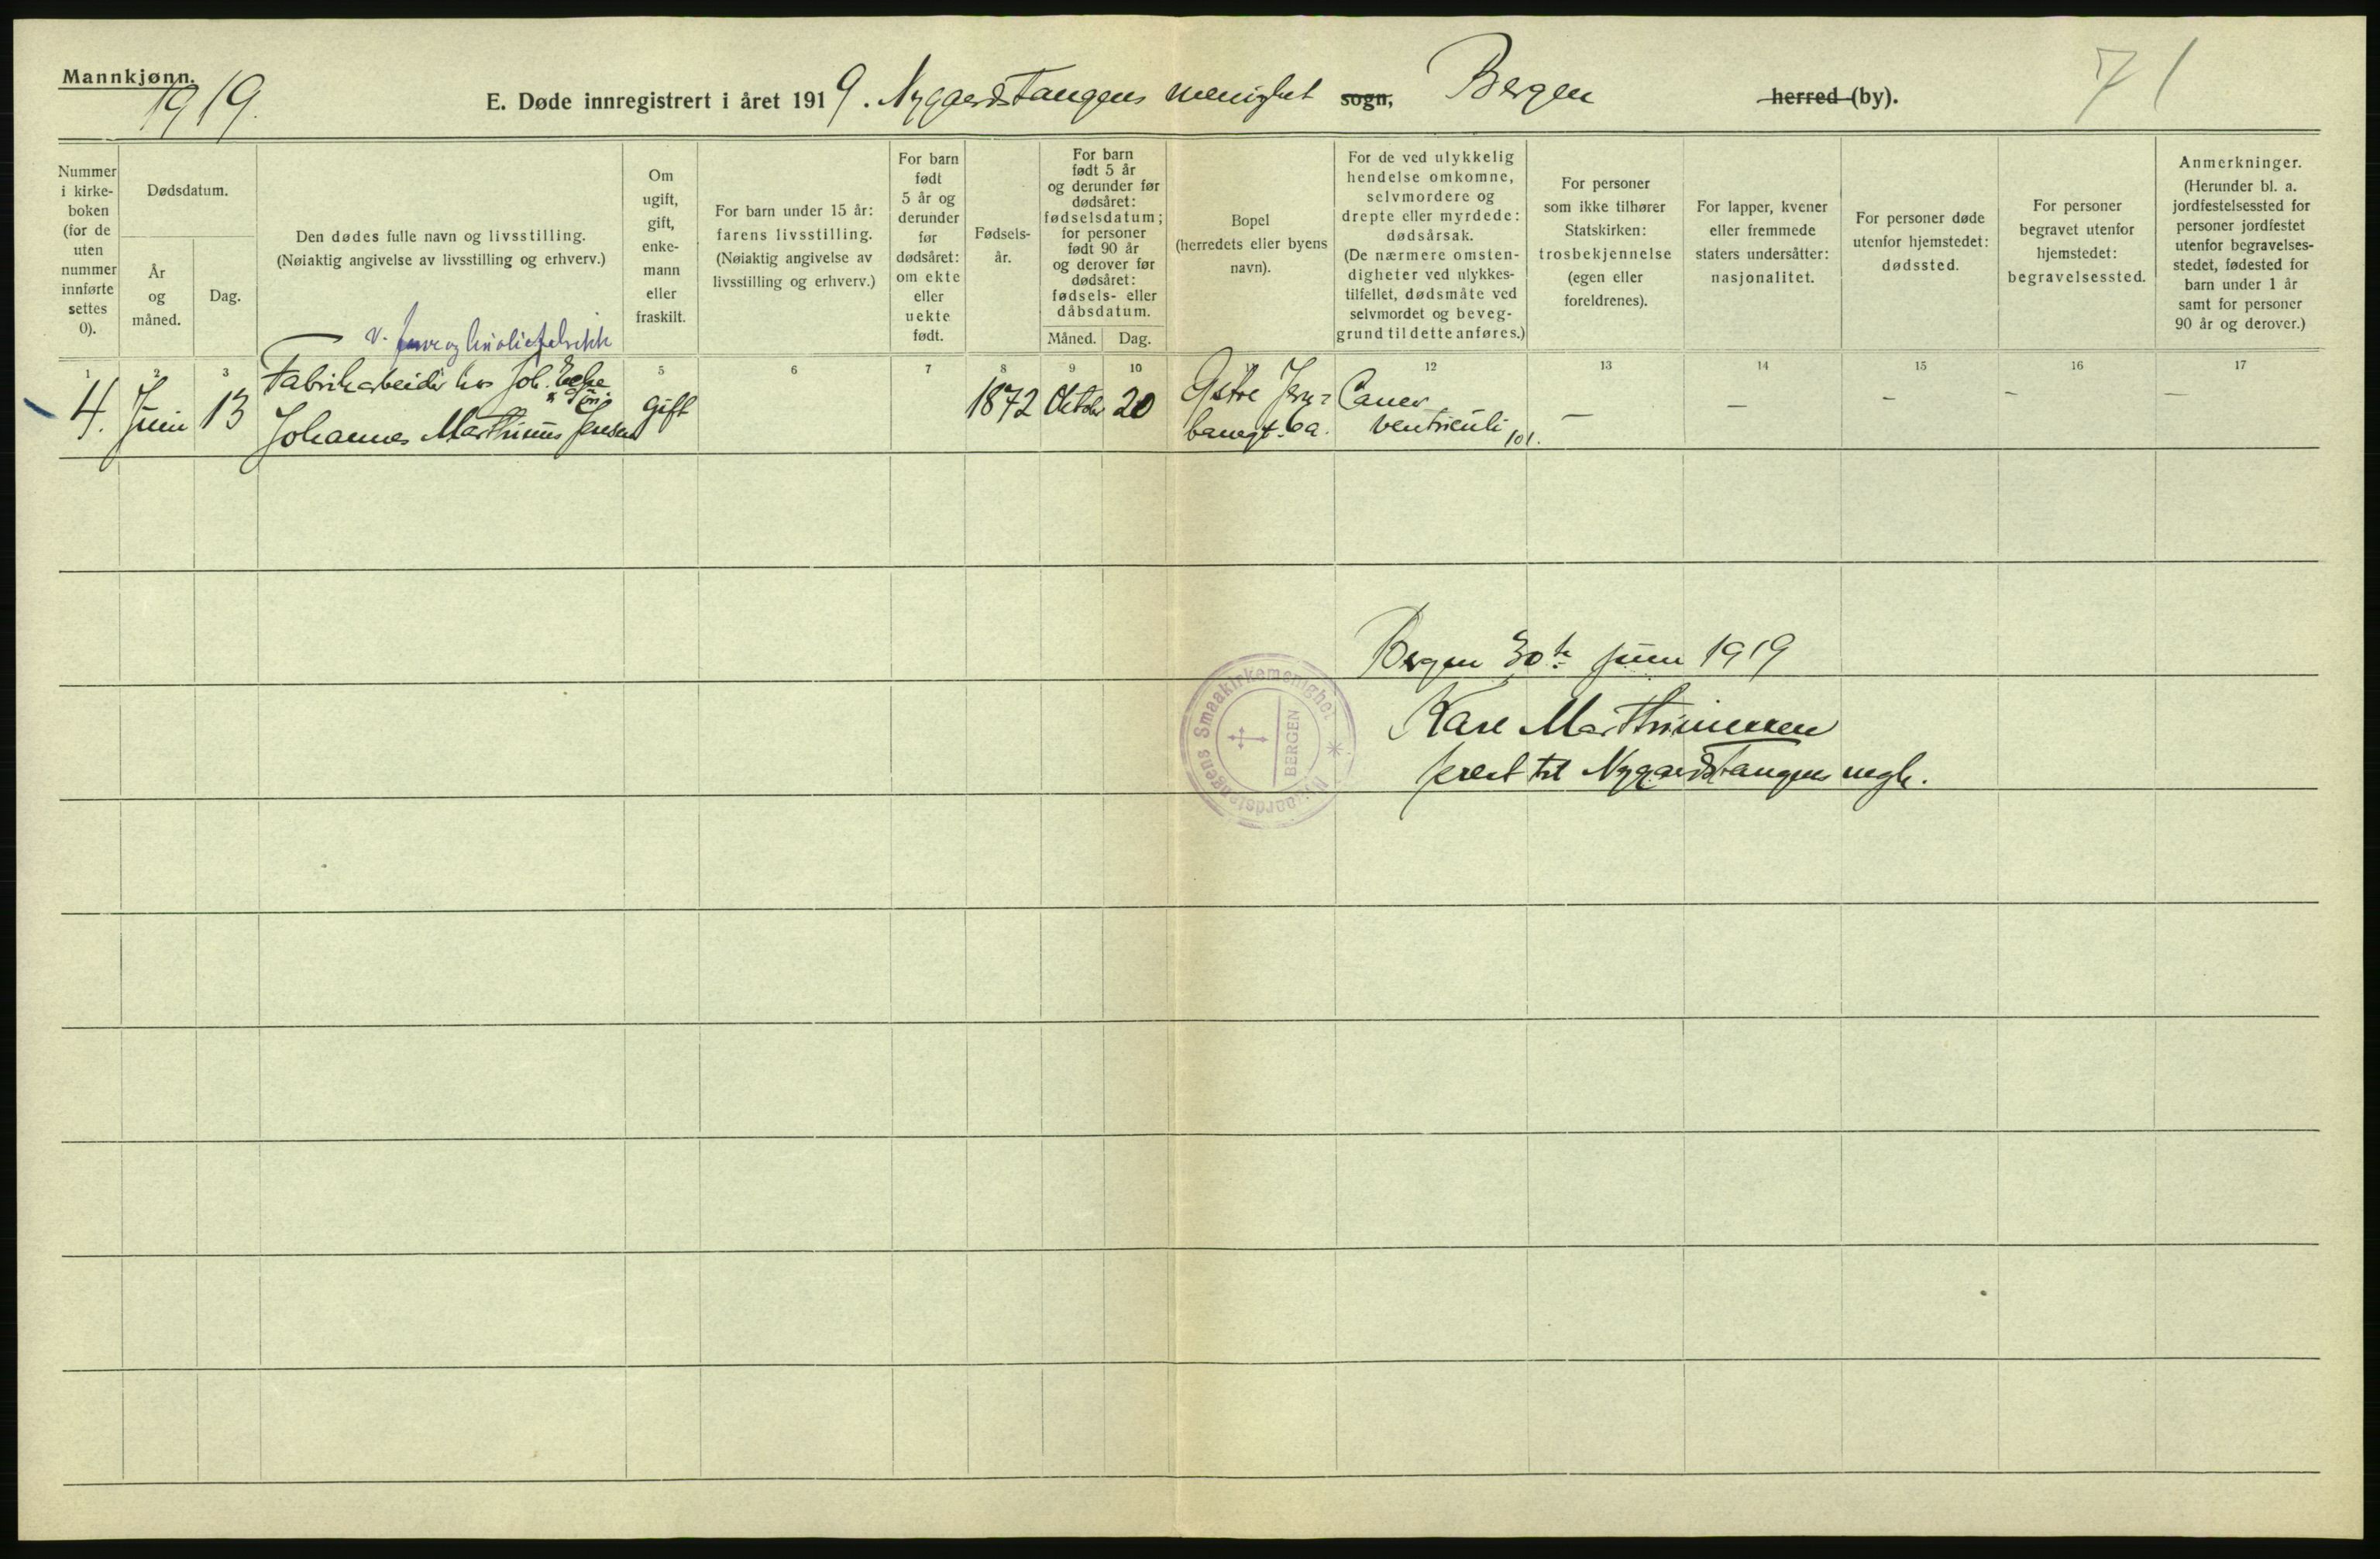 Mannkjønn.
1919.
E. Døde innregistrert i året 1919. Nygaardstangens menighet sogn, Bergen herred (by).
71
Nummer
i kirke-
boken
(for de
uten
nummer
innførte
settes
0).
Dødsdatum.
År
og
måned.
Dag.
Den dødes fulle navn og livsstilling.
(Nøiaktig angivelse av livsstilling og erhverv.)
Om
ugift,
gift,
enke-
mann
eller
fraskilt.
For barn under 15 år:
farens livsstilling.
(Nøiaktig angivelse av
livsstilling og erhverv.)
For barn
født
5 år og
derunder
før
dødsåret:
om ekte
eller
uekte
født.
Fødsels-
år.
For barn
født 5 år
og derunder før
dødsåret:
fødselsdatum;
for personer
født 90 år
og derover før
dødsåret:
fødsels- eller
dåbsdatum.
Måned.
Dag.
Bopel
(herredets eller byens
navn).
For de ved ulykkelig
hendelse omkomne,
selvmordere og
drepte eller myrdede:
dødsårsak.
(De nærmere omsten-
digheter ved ulykkes-
tilfellet, dødsmåte ved
selvmordet og beveg-
grund til dette anføres.)
For personer
som ikke tilhører
Statskirken:
trosbekjennelse
(egen eller
foreldrenes).
For lapper, kvener
eller fremmede
staters undersåtter:
nasjonalitet.
For personer døde
utenfor hjemstedet:
dødssted.
For personer
begravet utenfor
hjemstedet:
begravelsessted.
Anmerkninger.
(Herunder bl. a.
jordfestelsessted for
personer jordfestet
utenfor begravelses-
stedet, fødested for
barn under 1 år
samt for personer
90 år og derover.)
1 2 3 5 6 7 8 9 10 12 13 14 15 16 17
v. og
Fabrikarbeider hos Joh.
4. Juni 13 Johannes Marthinus Jensen gift 1872 Oktober 20
Østre Jern=
banegt. 6a.
Cancer
ventriculi 101.
— — — — —
Bergen 30te juni 1919
Kare Marthinussen
prest til Nygaardstangens megh.
Nygaardstangens Smaakirkemenighet
BERGEN